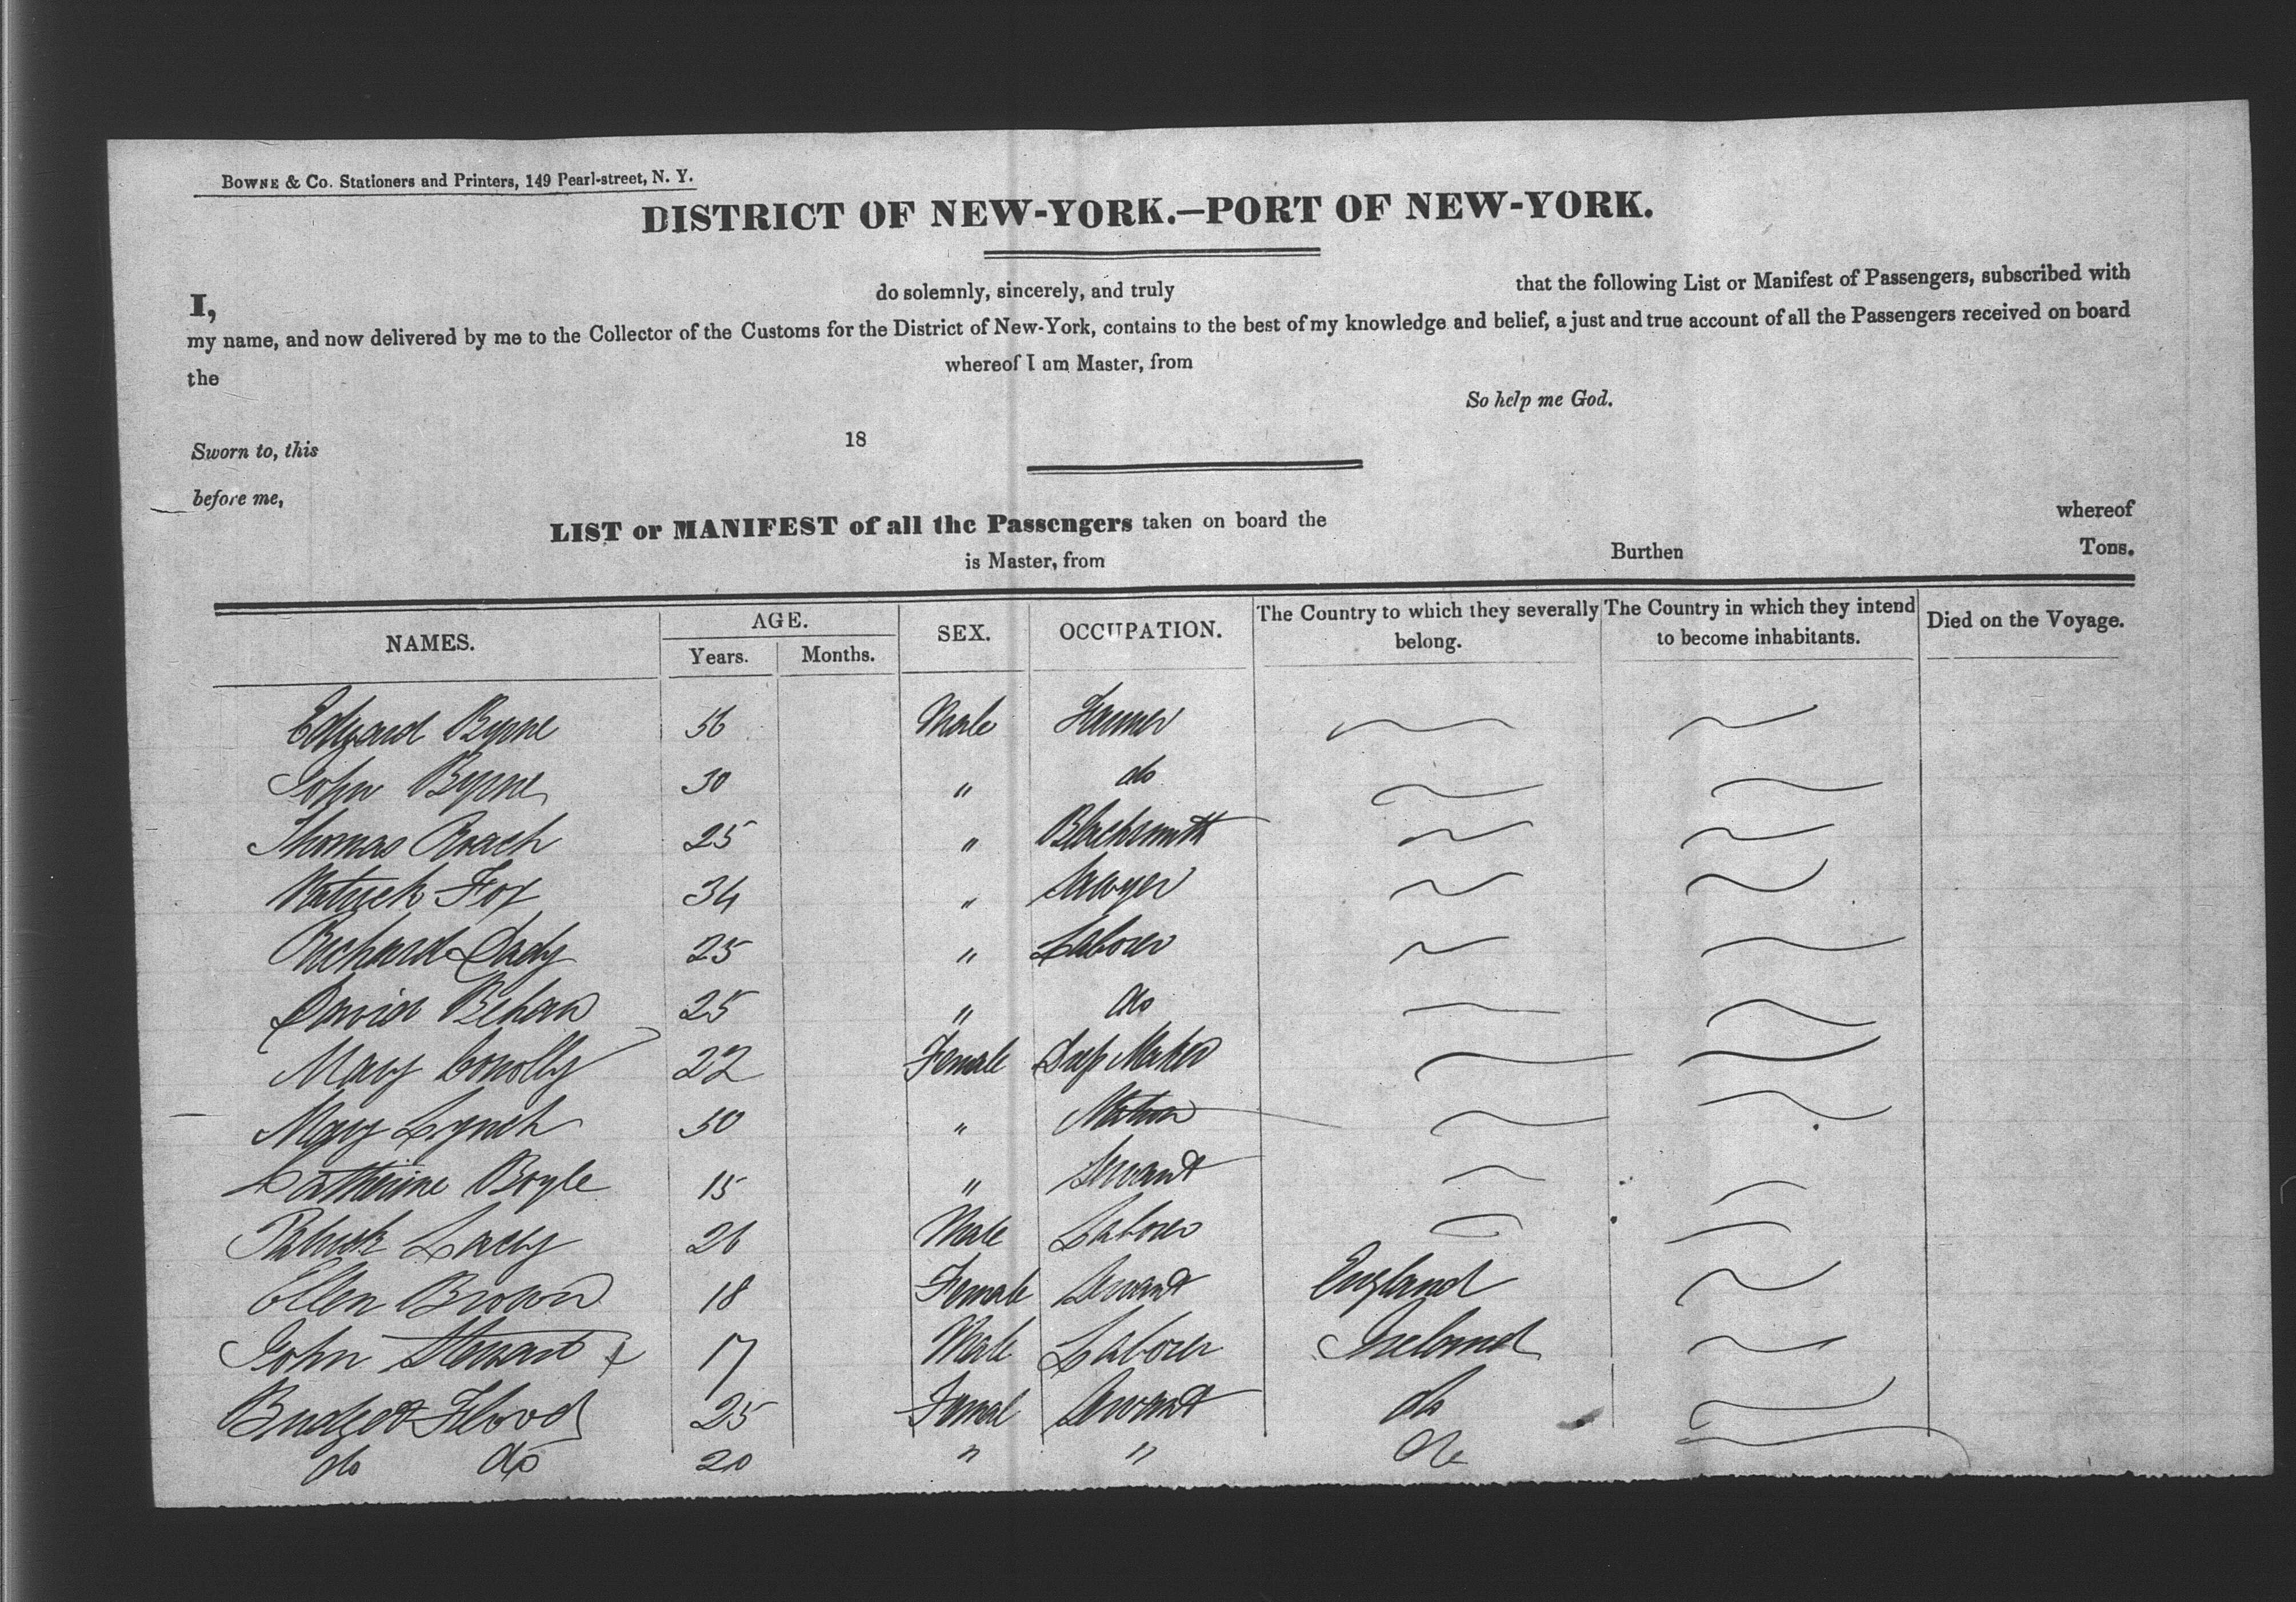 BOWNE & Co. Stationers and Printers, 149 Pearl-street, N. Y.
DISTRICT OF NEW-YORK.—PORT OF NEW-YORK.
I, do solemnly, sincerely, and truly that the following List or Manifest of Passengers, subscribed with
my name, and now delivered by me to the Collector of the Customs for the District of New-York, contains to the best of my knowledge and belief, a just and true account of all the Passengers received on board
the whereof I am Master, from
So help me God.
Sworn to, this 18
before me,
LIST or MANIFEST of all the Passengers taken on board the whereof
is Master, from Burthen Tons.
NAMES. AGE. Years. Months. SEX. OCCUPATION. The Country to which they severally belong. The Country in which they intend to become inhabitants. Died on the Voyage.
Edward Byrne 56 Male Farmer
John Byrne 30 " do
Thomas Roach 25 " Blacksmith
Patrick Fox 34 " Sawyer
Richard Dady 25 " Laborer
David Behan 25 " do
Mary Conolly 22 Female Maker
Mary Lynch 50 " Matron
Catherine Boyle 15 " Servant
Patrick Lacey 26 Male Laborer
Ellen Brown 18 Female Servant England
John Stewart 17 Male Laborer Ireland
Bridget Flood 25 Femal Servant do
do do 20 " " do